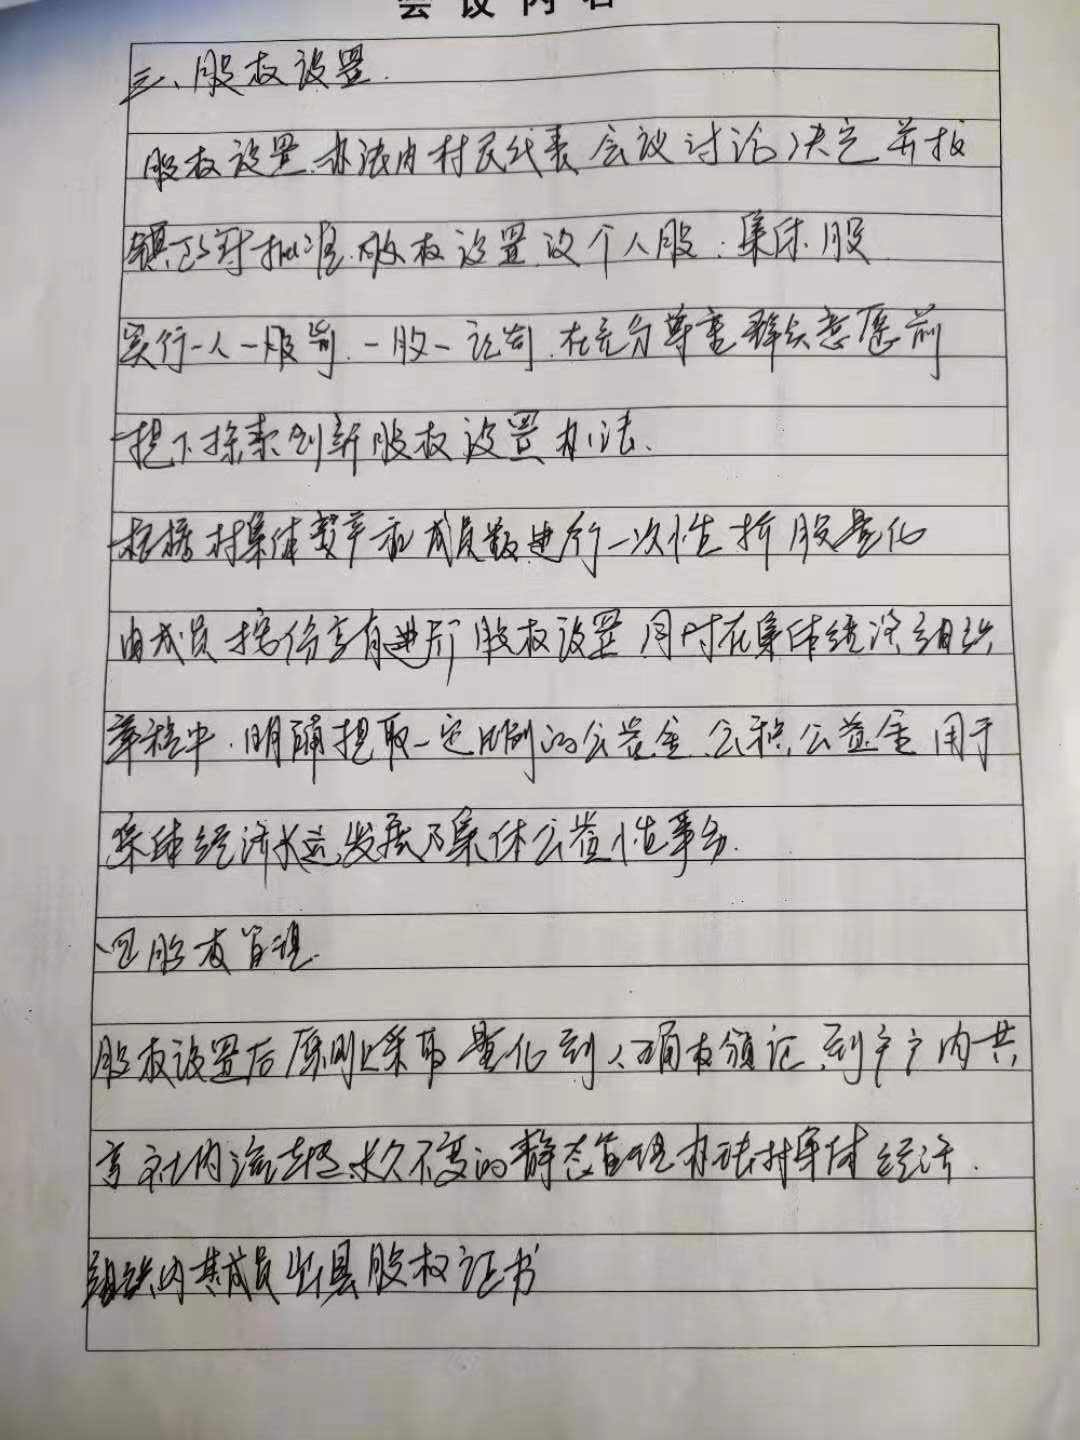 会议内容
三、股权设置.
股权设置办法由村民代表会议讨论决定并报
镇政府批准.股权设置设个人股.集体股
实行一人一股制.一股一证制.在充分尊重群众意愿前
提下探索创新股权设置办法.
根据村集体资产和成员数进行一次性折股量化
由成员按份享有进行股权设置同时在集体经济组织
章程中.明确提取一定比例的公益金.公积公益金用于
集体经济永远发展及集体公益性事务.
四股权管理.
股权设置后原则上采取量化到人确权颁证.到户户内共
享社内流转.永久不变的静态管理办法村集体经济.
组织内其成员出具股权证书